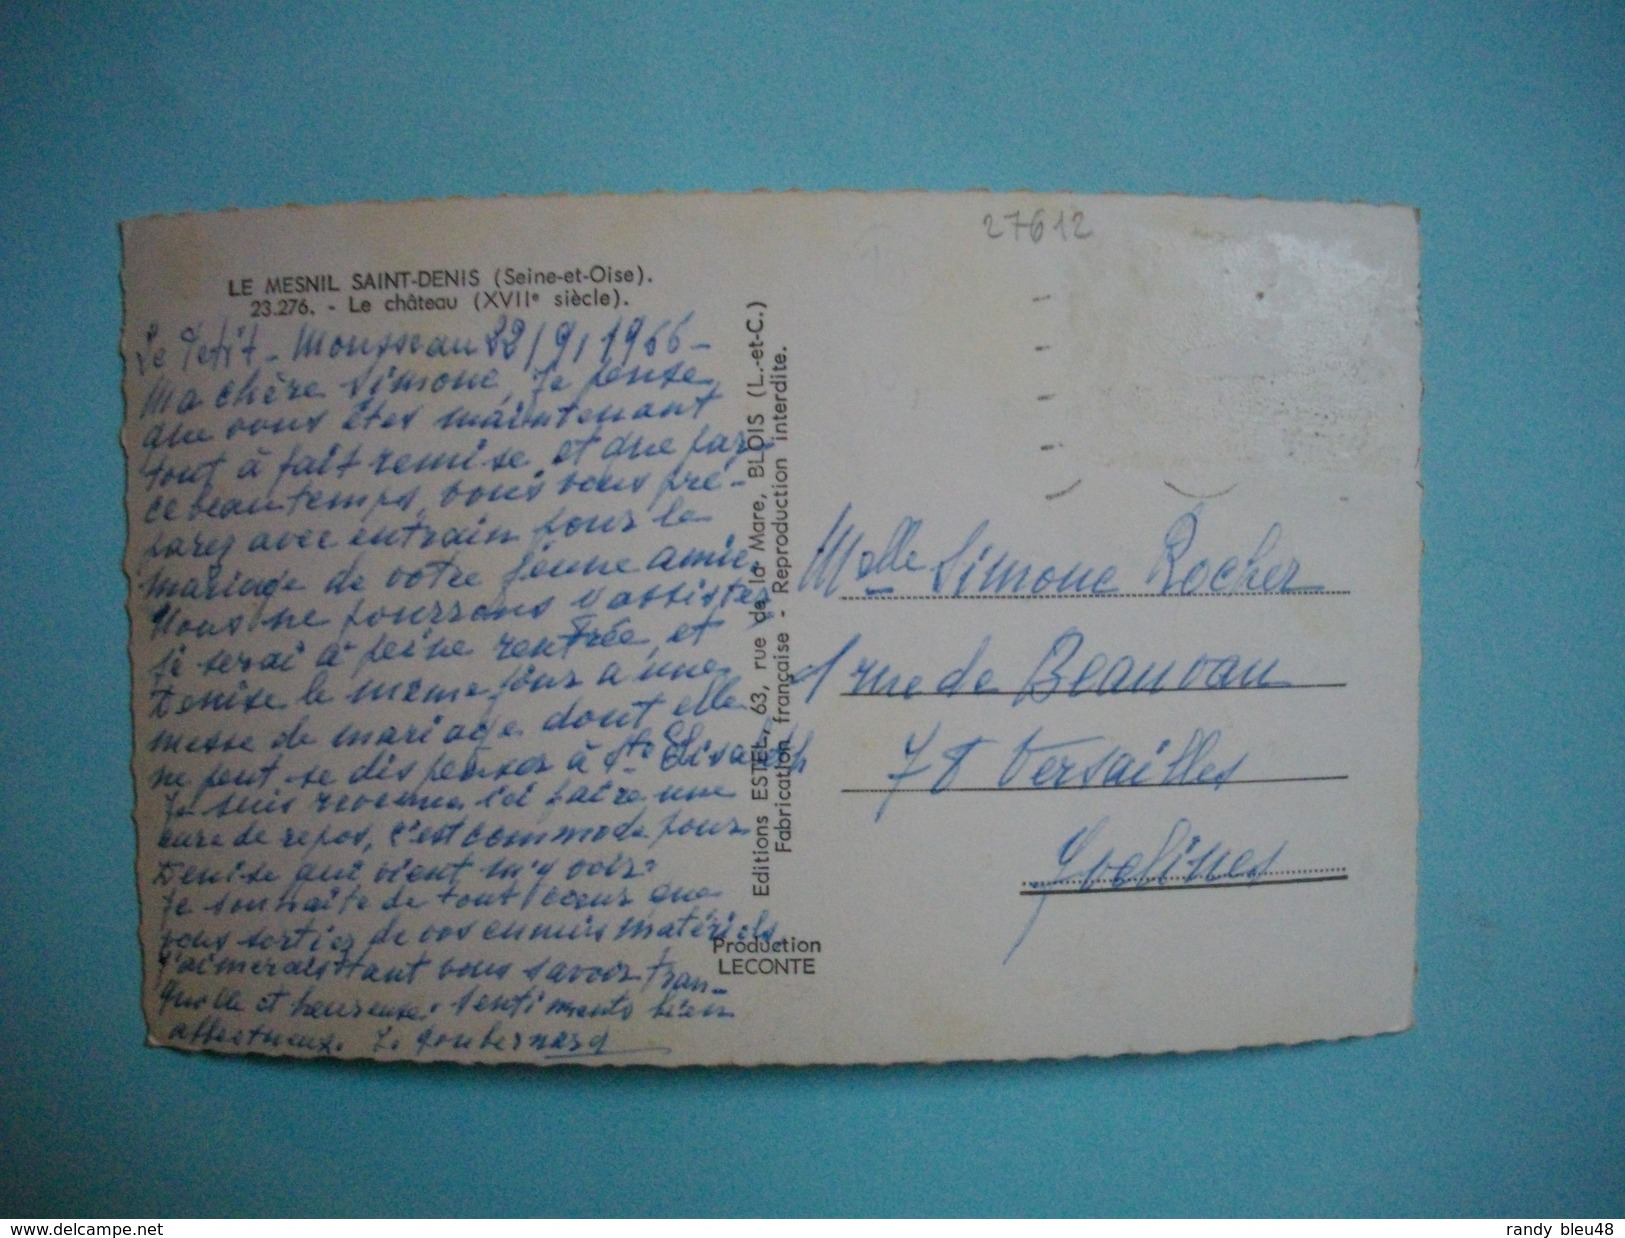 27612
LE MESNIL SAINT-DENIS (Seine-et-Oise).
23.276. - Le château (XVIIe siècle).
Le Petit-Mousseau 22/9/1966-
Ma chère Simone, Je pense
que vous êtes maintenant
tout à fait remise et que par
ce beau temps, vous vous pré-
parez avec entrain pour le
mariage de votre jeune amie.
Nous ne pourrons y assister
je serai à peine rentrée et
Denise le même jour a une
messe de mariage dont elle
ne peut se dispenser à Ste Elisabeth
Je suis revenue ici faire une
cure de repos, c'est commode pour
Denise qui vient m'y voir.
Je souhaite de tout coeur que
vous sortiez de vos ennuis matériels.
J'aimerais tant vous savoir tran-
quille et heureuse. Sentiments bien
affectueux. J. Goubernard
Editions ESTEL, 63, rue de la Mare, BLOIS (L.-et-C.)
Fabrication française - Reproduction interdite.
Production
LECONTE
Melle Simone Rocher
1 rue de Beauvau
78 Versailles
Yvelines
www.delcampe.net
randy_bleu48